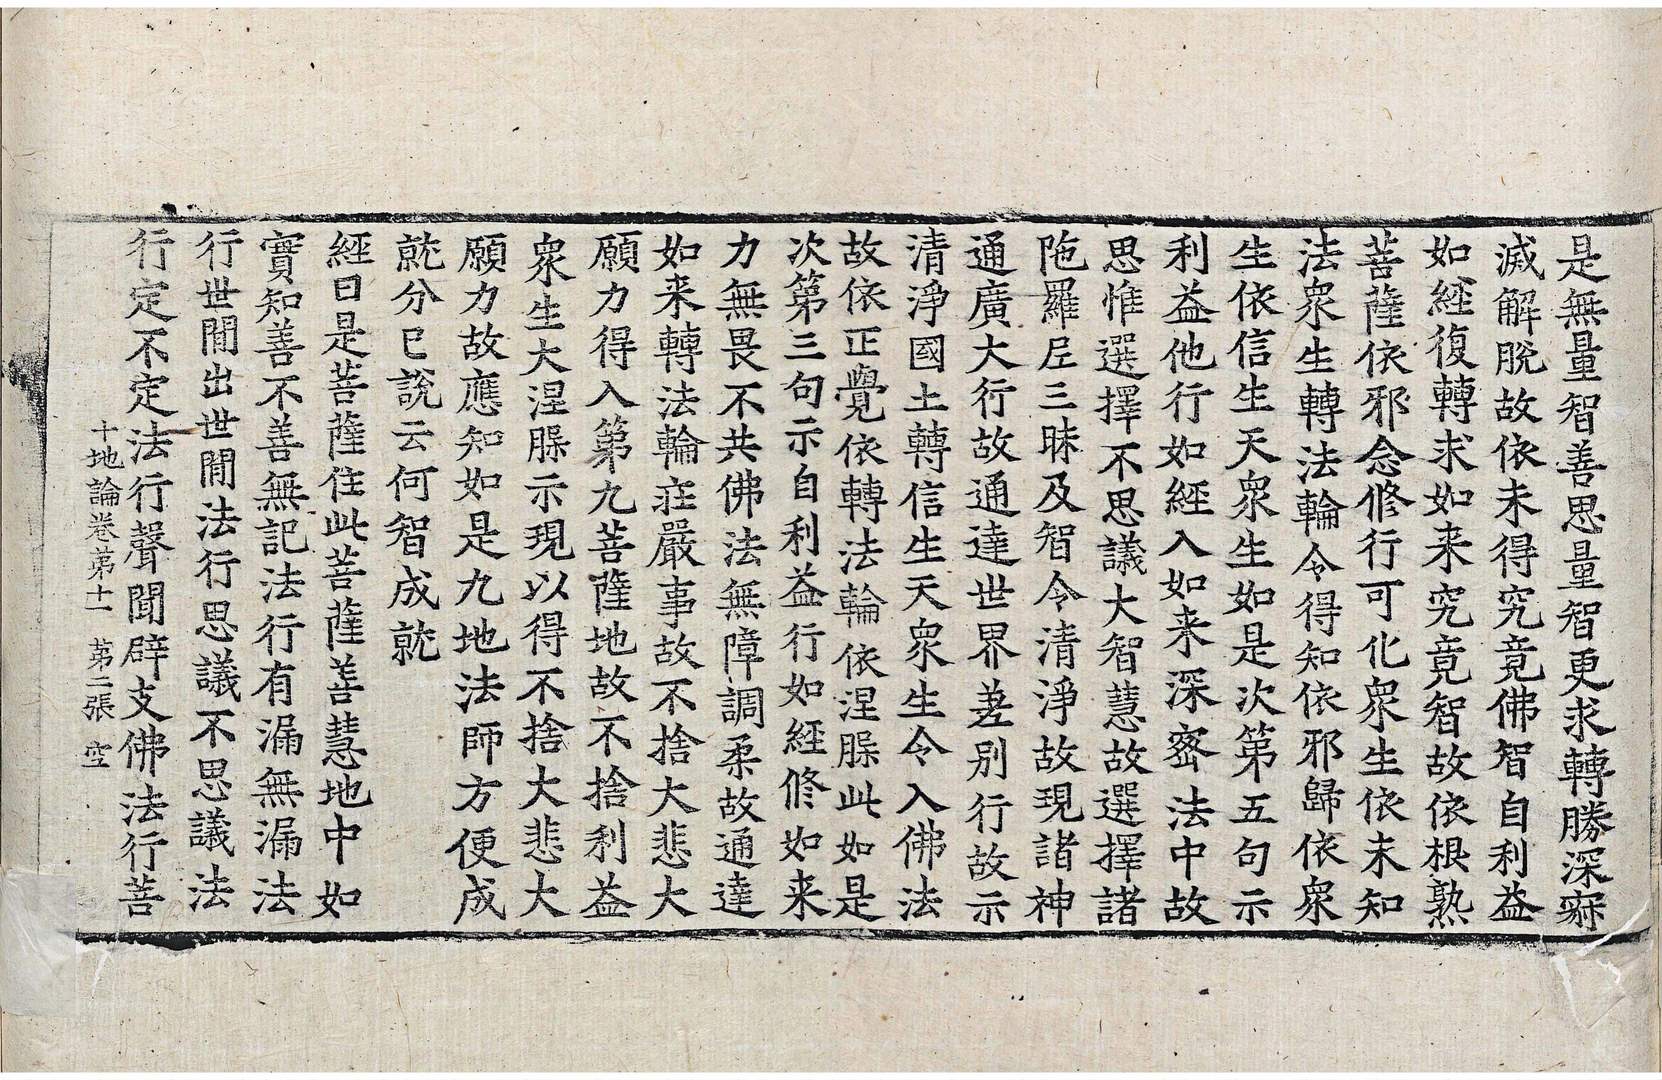 是無量智善思量智更求轉勝深𡨋
滅解脫故依未得究竟佛智自利益
如經復轉求如来究竟智故依根熟
菩薩依邪念修行可化衆生依未知
法衆生轉法輪令得知依邪歸依衆
生依信生天衆生如是次第五句示
利益他行如經入如来深密法中故
思惟選擇不思議大智慧故選擇諸
陁羅尼三昧及智令清淨故現諸神
通廣大行故通達世界差别行故示
清淨國土轉信生天衆生令入佛法
故依正覺依轉法輪依涅槃此如是
次第三句示自利益行如經修如来
力無畏不共佛法無障調柔故通達
如来轉法輪莊嚴事故不捨大悲大
願力得入第九菩薩地故不捨利益
衆生大涅槃示現以得不捨大悲大
願力故應知如是九地法師方便成
就分已說云何智成就
經曰是菩薩住此菩薩善慧地中如
實知善不善無記法行有漏無漏法
行世閒出世閒法行思議不思議法
行定不定法行聲聞辟支佛法行菩
十地論卷苐十一 苐二張 空